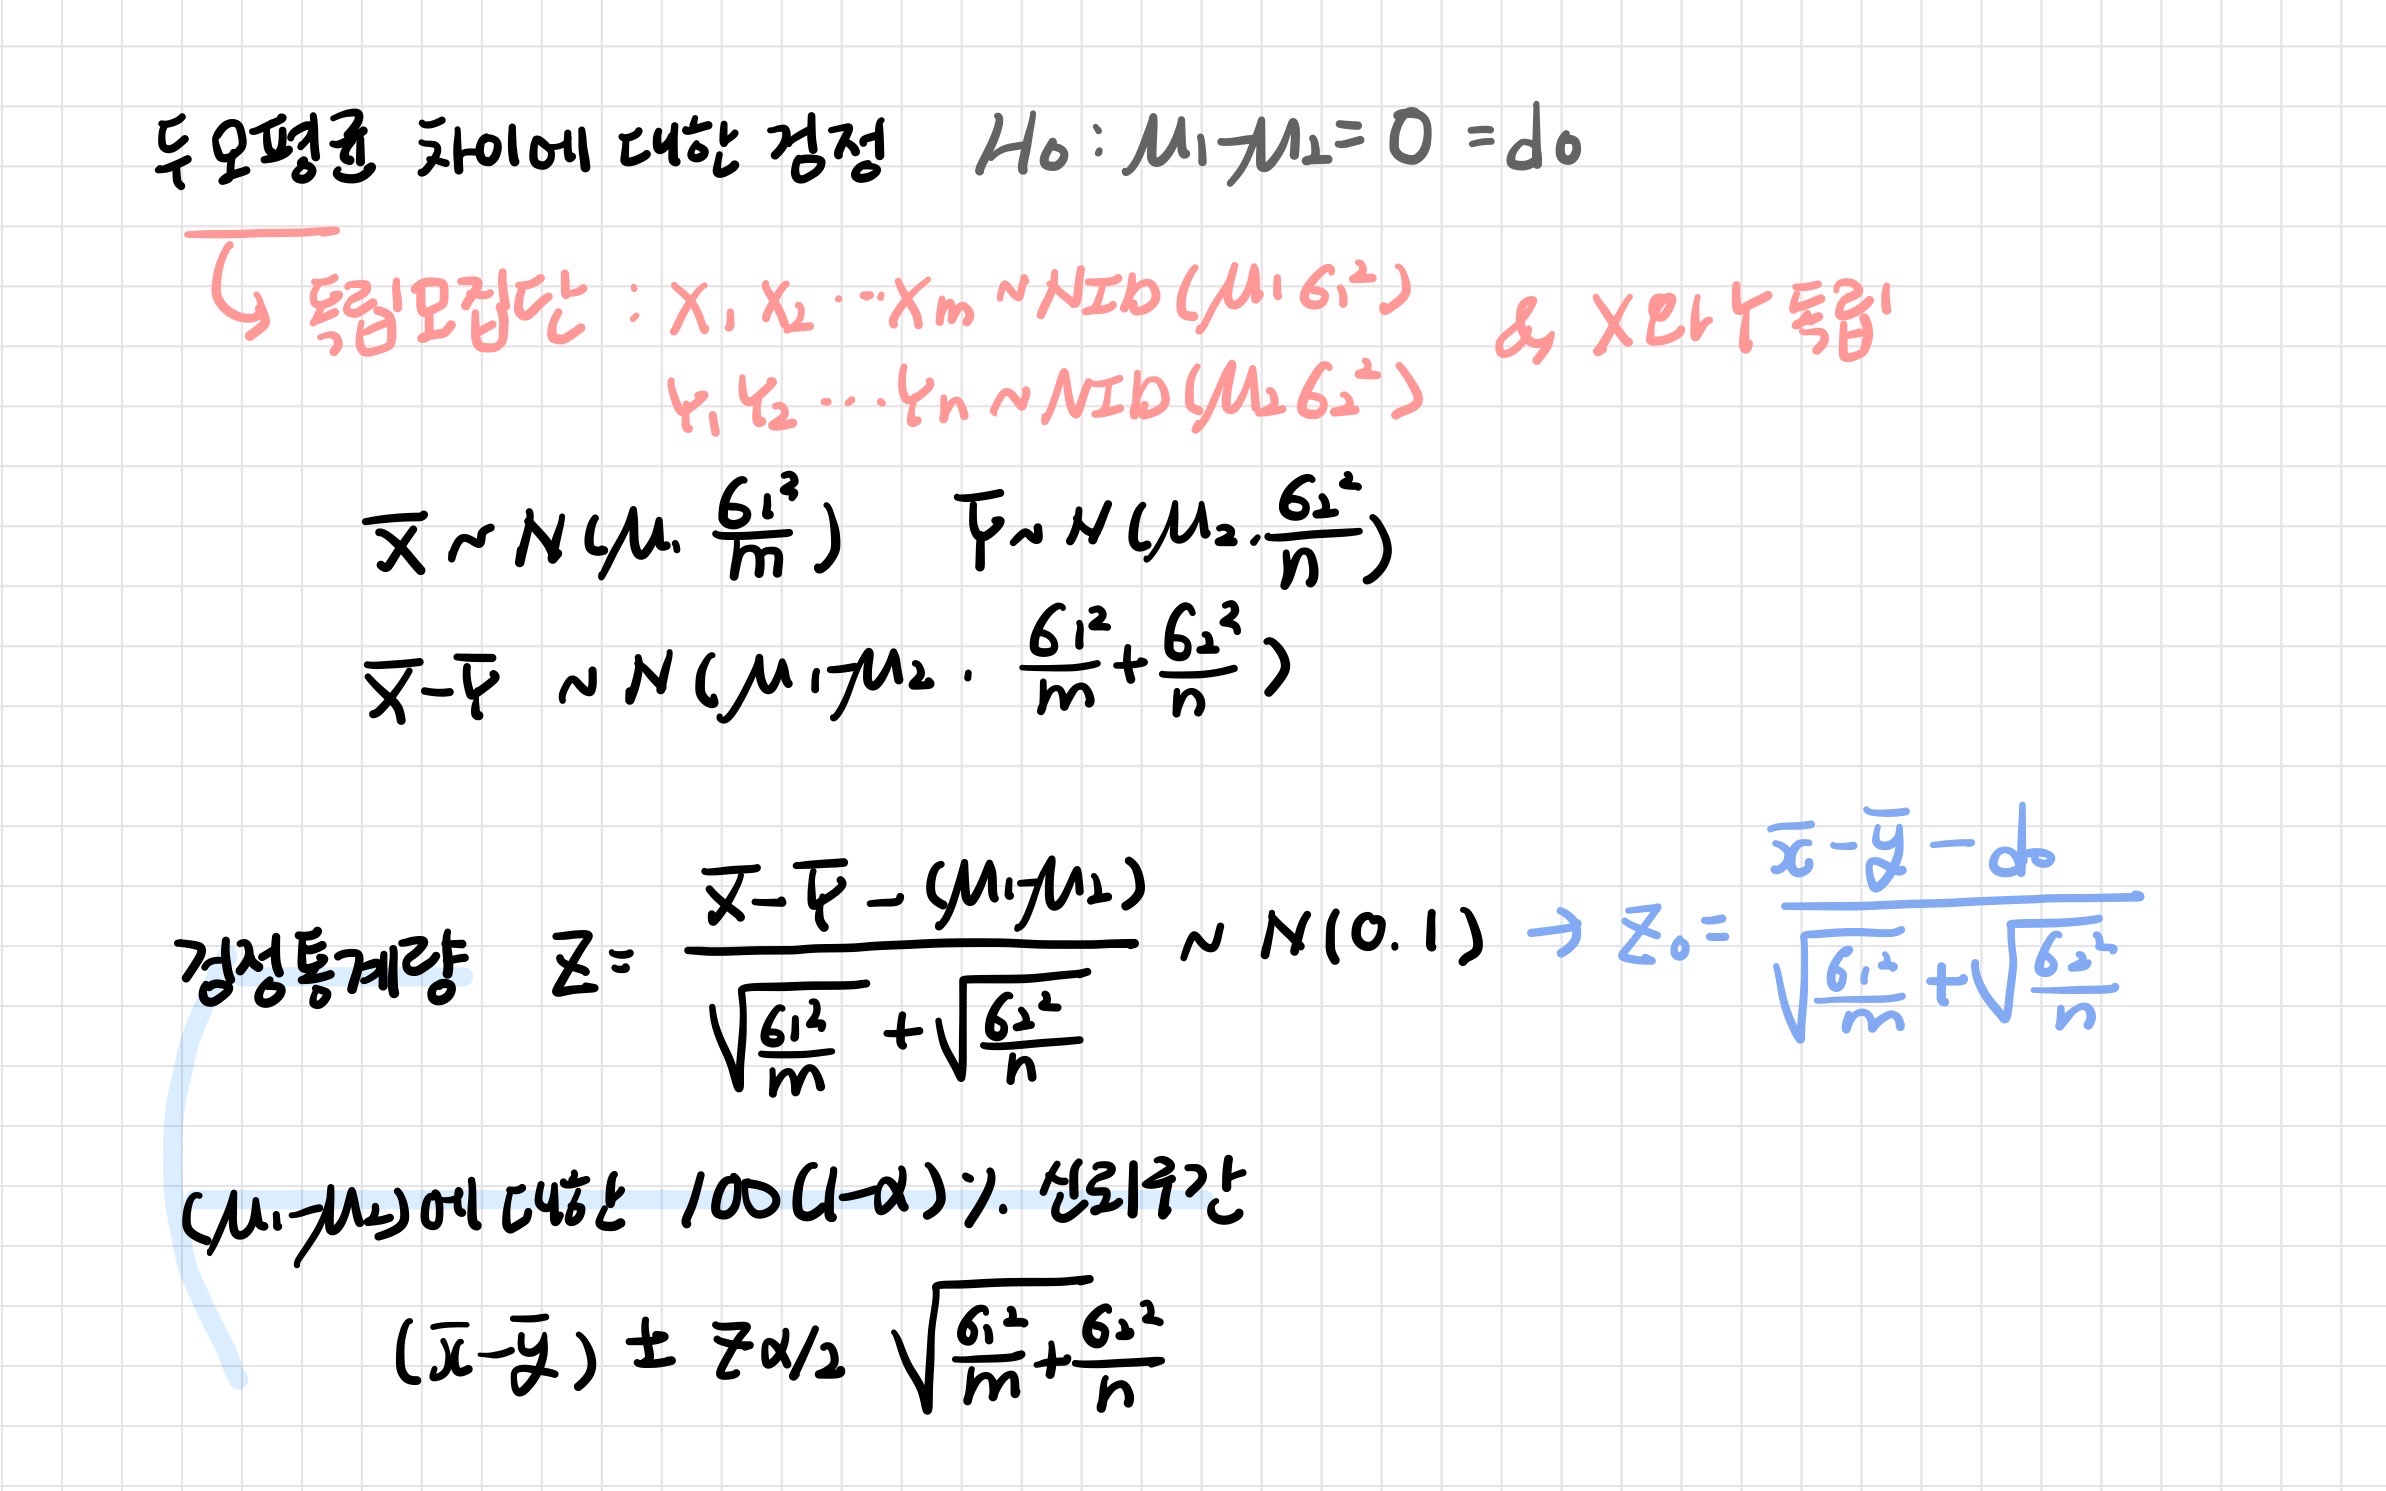 두 모평균 차이에 대한 검정 H₀ : μ₁-μ₂ = 0 = d₀
독립표집단 : X₁ X₂ ... Xₘ ~ NID(μ₁ σ₁²) & X랑 Y 독립
Y₁ Y₂ ... Yₙ ~ NID(μ₂ σ₂²)
X̄ ~ N(μ. σ₁²/m) Ȳ ~ N(μ₂. σ₂²/n)
X̄-Ȳ ~ N(μ₁-μ₂. σ₁²/m + σ₂²/n)
검정통계량 Z = (X̄-Ȳ-(μ₁-μ₂)) / (√(σ₁²/m) + √(σ₂²/n)) ~ N(0.1) → Z₀ = (x̄-ȳ-d₀) / (√(σ₁²/m) + √(σ₂²/n))
(μ₁-μ₂)에 대한 100(1-α)% 신뢰구간
(x̄-ȳ) ± Zα/₂ √(σ₁²/m + σ₂²/n)